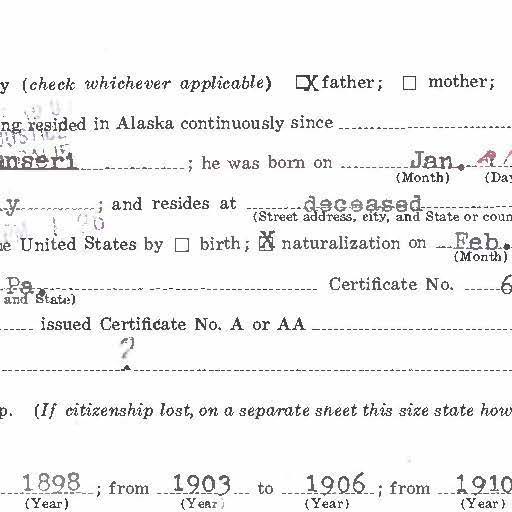 y (check whichever applicable) X father; mother;
ng resided in Alaska continuously since
anseri ; he was born on Jan.
(Month) (Day
y ; and resides at deceased
(Street address, city, and State or coun
e United States by birth; X naturalization on Feb.
(Month)
Pa. Certificate No. 6
and State)
issued Certificate No. A or AA
?
p. (If citizenship lost, on a separate sheet this size state how
1898 ; from 1903 to 1906 ; from 1910
(Year) (Year) (Year) (Year)